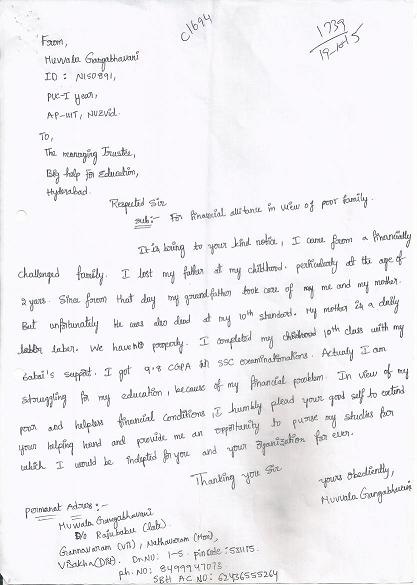 C1694
1739
19-10-15
From,
Muvvala Gangabhavani
ID : N150891,
PUC-I year,
AP-IIIT, Nuzvid.
To,
The managing Trustee,
Big help for Education,
Hyderabad.
Respected Sir
Sub:- For financial assitance in view of poor family.
It is bring to your kind notice, I came from a financially
challenged family. I lost my father at my childhood. perticularly at the age of
2 years. Since from that day my grandfather took care of my me and my mother.
But unfortunately He was also dead at my 10th standard. My mother is a daily
laber. We have no property. I completed my childhood 10th class with my
babai's support. I got 9.8 CGPA in SSC examinationations. Actually I am
struggling for my education, because of my financial problem. In view of my
poor and helpless financial conditions, I humbly plead your good self to extend
your helping hand and provide me an opportunity to purse my studies for
which I would be indepted for you and your Organization for ever.
Thanking you Sir
yours obediently,
Muvvala Gangabhavani
Permanat Adress :-
Muvvala Gangabhavani
D/o Rajubabu (late).
Gannavaram (Vill), Nathavaram (Mon),
Visakha (Dist). Dr.No: 1-5. pin code : 531115.
ph. NO: 8499947073
SBH AC NO: 62436555264